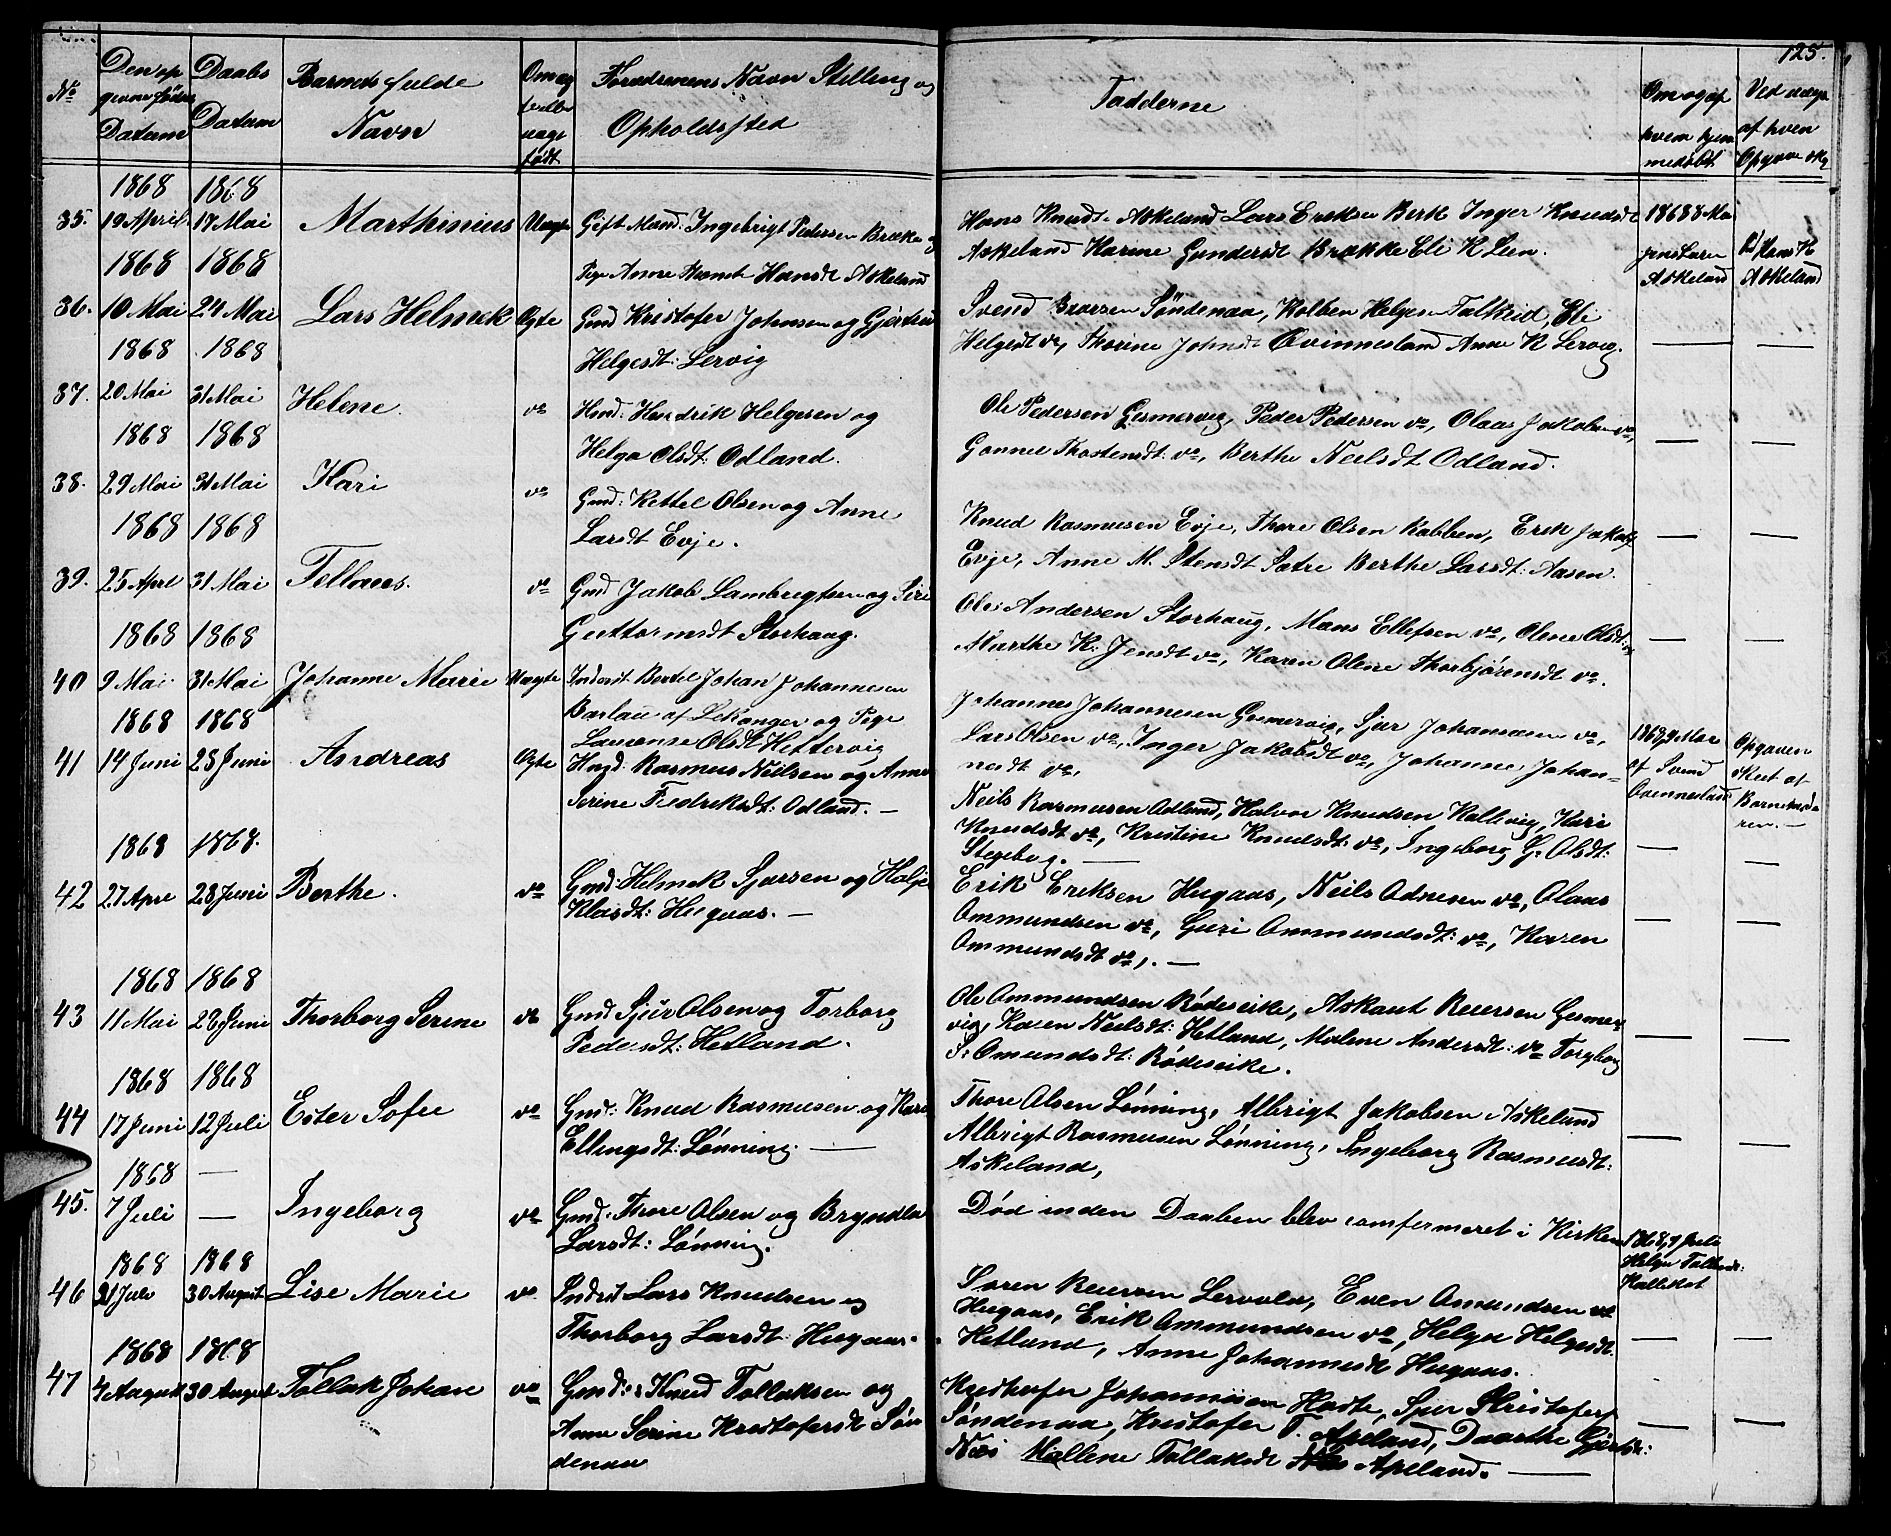 125.
No
Den op
givne føds
Datum
Daabs
Datum
Barnets fulde
Navn
Om eg
te eller
uægt
født
Forældrenes Navn Stilling og
Opholdssted
Fadderne
Om og af
hvem hjem
medøbt
af hvem
1868 1868
35. 19 April 17 Mai Marthinius Uægte Gift Mand: Ingebrigt Pedersen Brække og
Pige Anne Hansdt Askeland
Hans Knuds. Askeland Lars Eriksen Berk Inger Knudsdt
Askeland Karine Gundersdt Brække Eli K Lien.
1868 8 Mai
Jens Larsen
Askeland
Hans K
Askeland
1868 1868
36. 10 Mai 24 Mai Lars Helmek Ægte Gmd Kristofer Johansen og Gjertine
Helgesdt: Lervig
Svend Baarsen Søndenaa, Kolben Helgesen Falkeid, Eli
Helgesdt do, Thorine Johnsdt Qvinnesland Anne K Lervig.
1868 1868
37. 20 Mai 31 Mai Helene. do Hmd: Hendrik Helgesen og
Helga Olsdt: Odland.
Ole Pedersen Gesmervig, Peder Pedersen do, Olaus Jakobsen do,
Gonnel Thostensdt: do, Berthe Neilsdt Odland.
1868 1868
38. 29 Mai 31 Mai Kari do Gmd: Kettel Olsen og Anne
Larsdt Evje.
Knud Rasmusen Evje, Thore Olsen Kobben, Erik Jakobs
Evje, Anne M. Stensdt Sætre Berthe Larsdt: Aasen.
1868 1868
39. 25 Aprl 31 Mai Tellnes. do Gmd Jakob Lambregtsen og Siri
Guttormsdt Storhaug.
Ole Andersen Storhaug, Mons Ellefsen do, Olene Olsdt: do
Marthe K. Jensdt do, Karen Olene Thorbjørensdt do.
1868 1868
40 9 Mai 31 Mai Johanne Marie Uægte Inderst Bertel Johan Johannesen
Barlau af Lekanger og Pige
Laurense Olsdt Hettervig
Johannes Johannesen Gesmervig, Sjur Johannesen do,
Lars Olsen do, Inger Jakobsdt do, Johanne Johan-
nesdt do,
1868, 9 Mai
af Svend
Qvinnesland
Opgaven
skeet af
Barnemode
ren. —
1868 1868
41 14 Juni 28 Juni Andreas Ægte Hmd: Rasmus Neilsen og Anne
Serine Fredriksdt: Odland. —
Neils Rasmusen Odland, Halvor Knudsen Kallevig, Kari
Knudsdt do, Kristine Knudsdt: do, Ingeborg G. Olsdt:
Stegebog. —
1868 1868.
42 27 Apre 28 Juni Berthe. do Gmd: Helmek Sjursen og Helje
Klasdt: Hugaas. —
Erik Eriksen Hugaas, Neils Adnesen do, Olaus
Ommundsen do, Guri Ommundsdt: do, Karen
Ommundsdt do, . —
1868 1868
43 11 Mai 28 Juni Thorborg Serine do Gmd Sjur Olsen og Torborg
Pedersdt: Hetland.
Ole Ommundsen Rødeseike, Askaut Reiersen Gesmer
vig, Karen Neilsdt: Hetland, Malene Andersdt: do Torgborg
S: Omundsdt: Rødeseike.
1868 1868
44 17 Juni 12 Juli Ester Sofie do Gmd: Knud Rasmusen og Kari
Ellingsdt: Lønning. —
Thore Olsen Lønning, Albrigt Jakobsen Askeland
Albrigt Rasmusen Lønning, Ingeborg Rasmusdt:
Askeland,
1868 —
45. 7 Juli — Ingeborg do Gmd: Thore Olsen og Bryndla
Larsdt: Lønning.
Død inden Daaben blev comfermeret i Kirken
1868, 7 Juli
1868 1868
46 21 Juli 30 August Lise Marie do Indrst Lars Knudsen og
Thorborg Larsdt Hugaas.
Søren Reiersen Lervola, Even Omundsen
Hugaas, Erik Ommundsen do, Helga Helgesdt.
Hetland, Anne Johannesdt Hugaas.
1868 1868
47 4 August 30 August Tollak Johan do Gmd: Knud Tollaksen og
Anne Serine Kristofersdt Søn
denaa
Kristofer Johannesen Hodte, Sjur Kristofers
Søndenaa, Kristofer T. Apeland, Daarthe Gjerts
Næs Mallene Tollaksdt Apeland. —